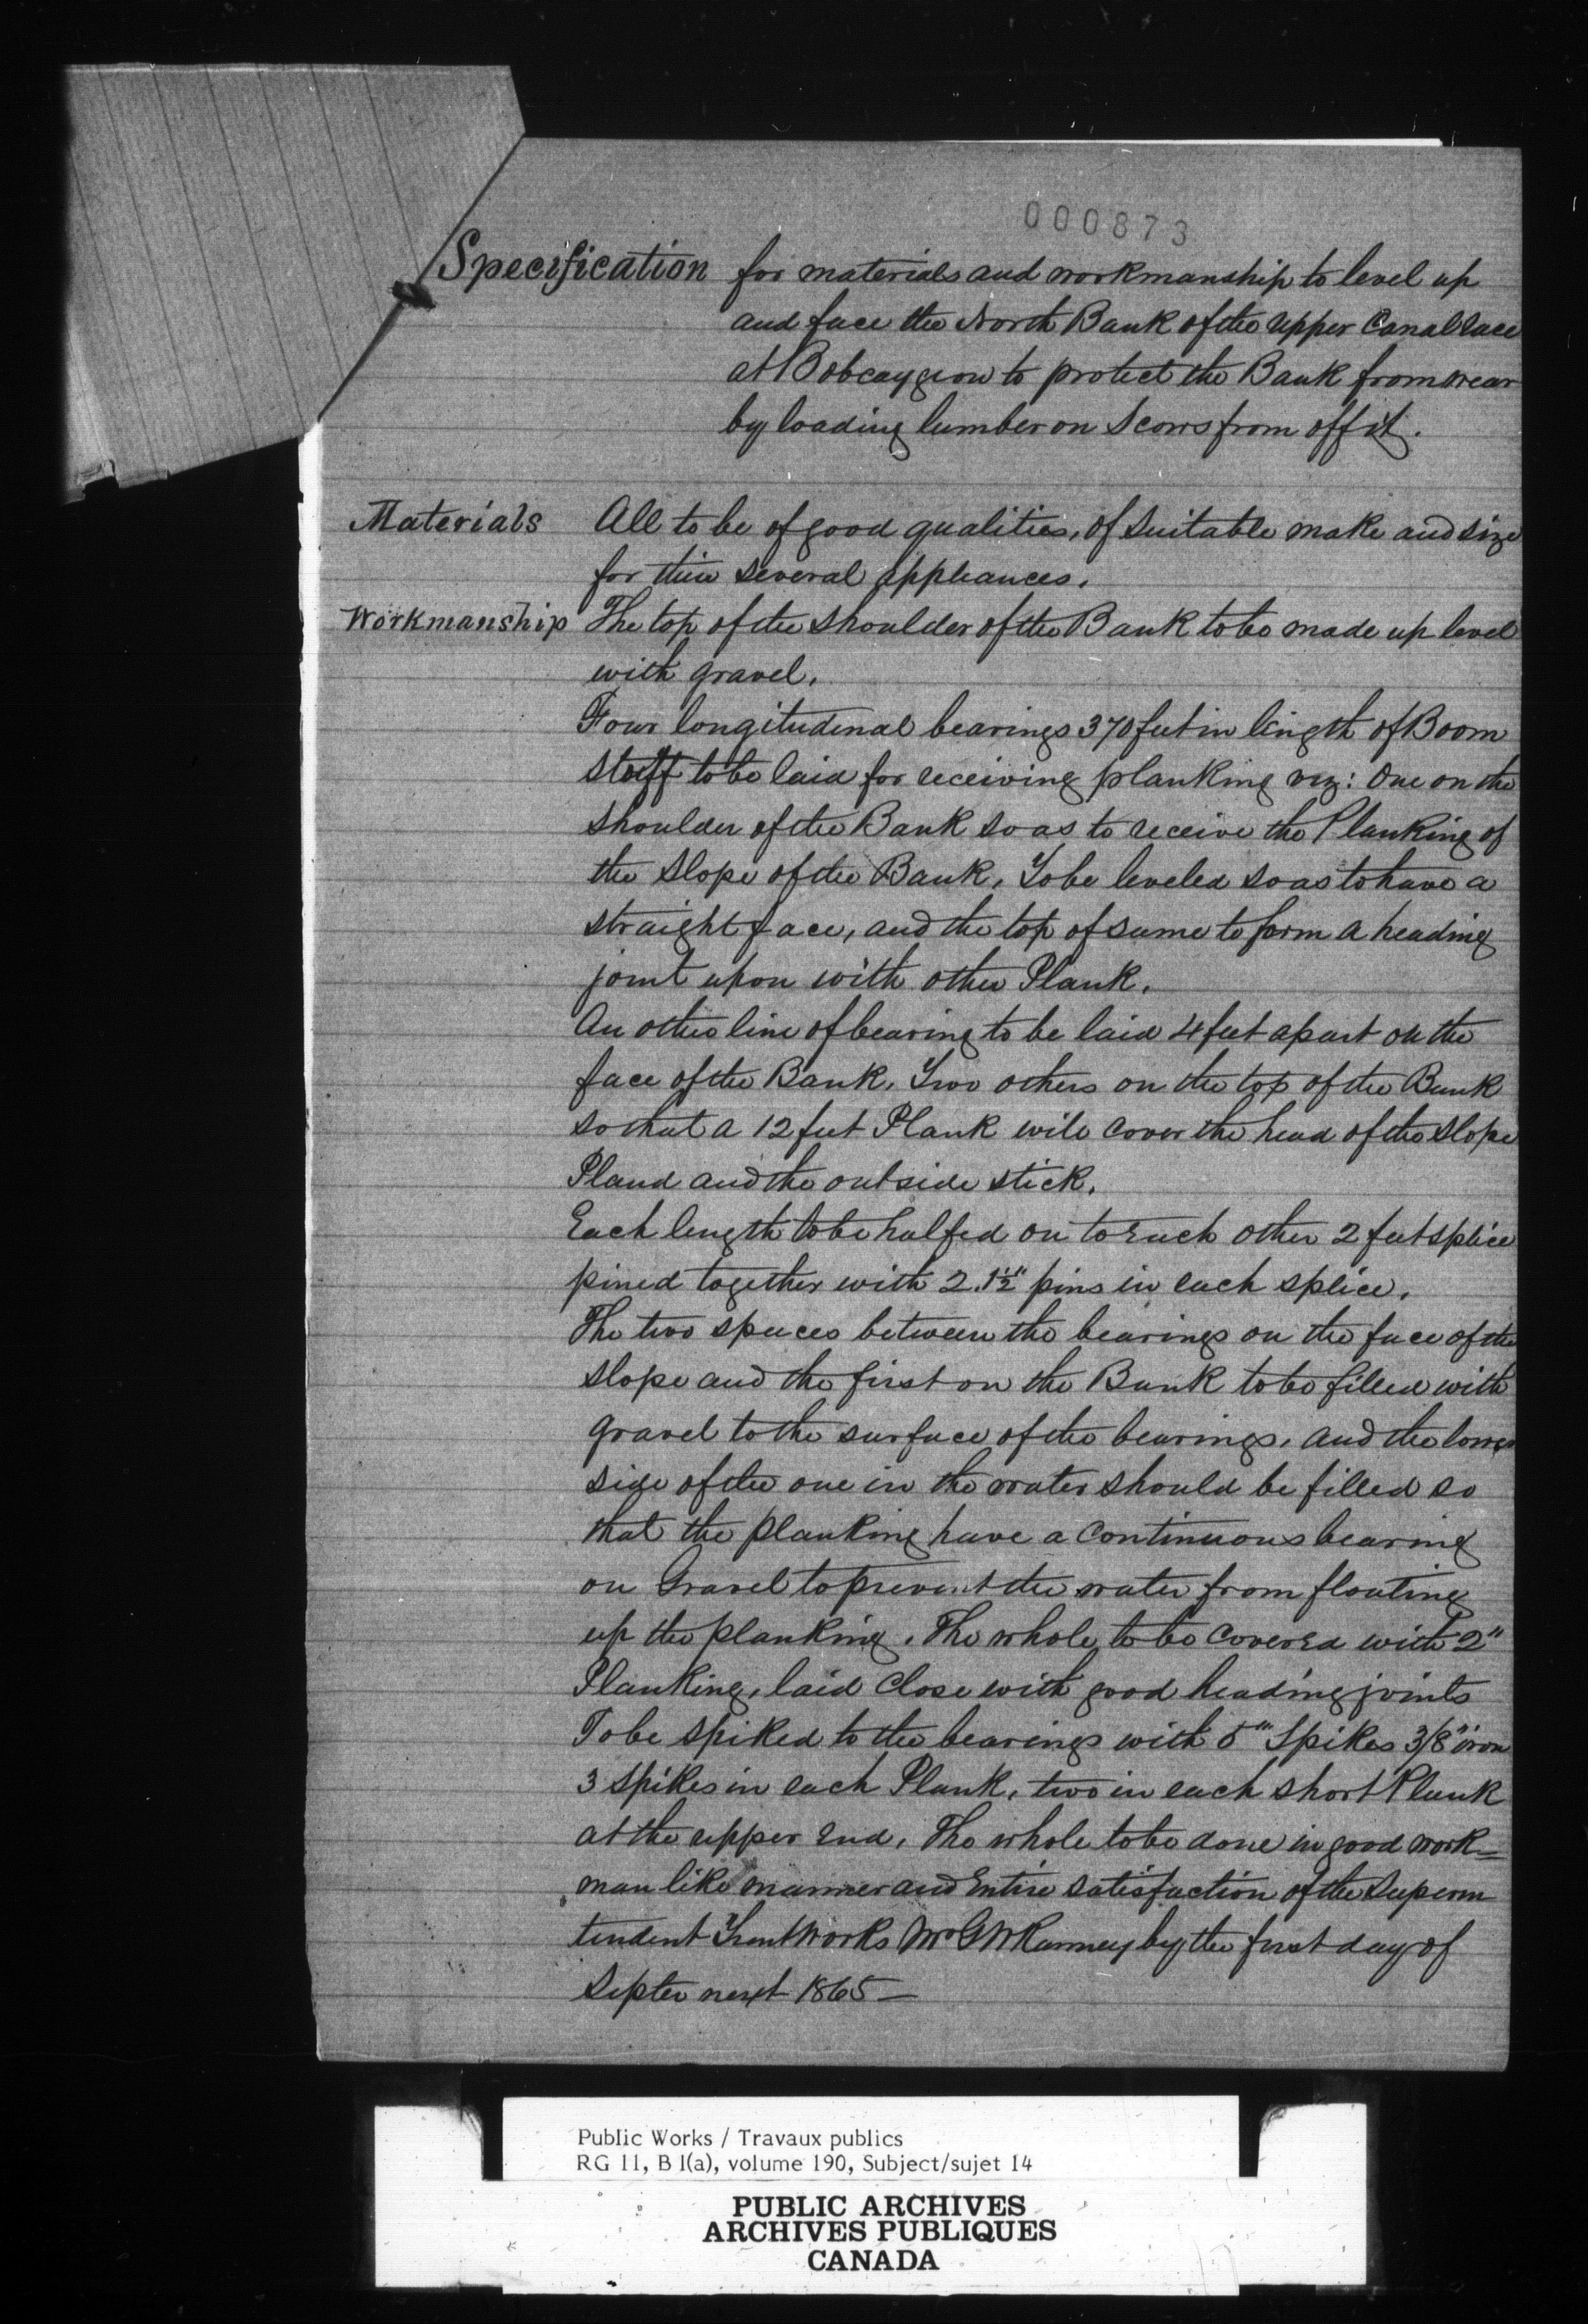 000873
Specification for materials and workmanship to level up
and face the North Bank of the upper Canal race
at Bobcaygeon to protect the Bank from wear
by loading lumber on Scows from off it.
Materials All to be of good qualities, of suitable make and size
for their several appliances.
Workmanship The top of the shoulder of the Bank to be made up level
with gravel.
Four longitudinal bearings 370 feet in length of Boom
stuff to be laid for receiving planking viz: One on the
shoulder of the Bank so as to receive the Planking of
the slope of the Bank, To be leveled so as to have a
straight face, and the top of same to form a heading
joint upon with other Plank.
An other line of bearing to be laid 4 feet apart on the
face of the Bank. Two others on the top of the Bank
so that a 12 feet Plank will cover the head of the slope
Pland and the outside stick.
Each length to be halfed on to Each other 2 feet splice
pined together with 2. 1½" pins in each splice.
The two spaces between the bearings on the face of the
slope and the first on the Bank to be filled with
gravel to the surface of the bearings, and the lower
side of the one in the water should be filled so
that the planking have a continuous bearing
on Gravel to prevent the water from floating
up the planking. The whole to be covered with 2"
Planking, laid close with good heading joints
To be spiked to the bearings with 5" Spikes 3/8" iron
3 spikes in each Plank, two in each short Plank
at the upper End. The whole to be done in good work=
man like manner and Entire satisfaction of the Superin
tendent Trent Works Mr G W Ranney by the first day of
Septer next 1865 —
Public Works / Travaux publics
RG 11, B 1(a), volume 190, Subject/sujet 14
PUBLIC ARCHIVES
ARCHIVES PUBLIQUES
CANADA